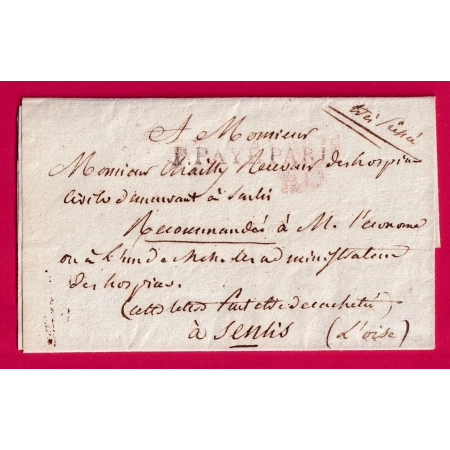 très pressé
A Monsieur
P.PAYÉ PARIS
Monsieur Mailly Receveur des hospices
Civils demeurant à Senlis
Recommandés à M. l'econome
ou à L'un de Mrs les administrateurs
des hospices.
(cette lettre peut etre decachetée)
à Senlis (L'oise)